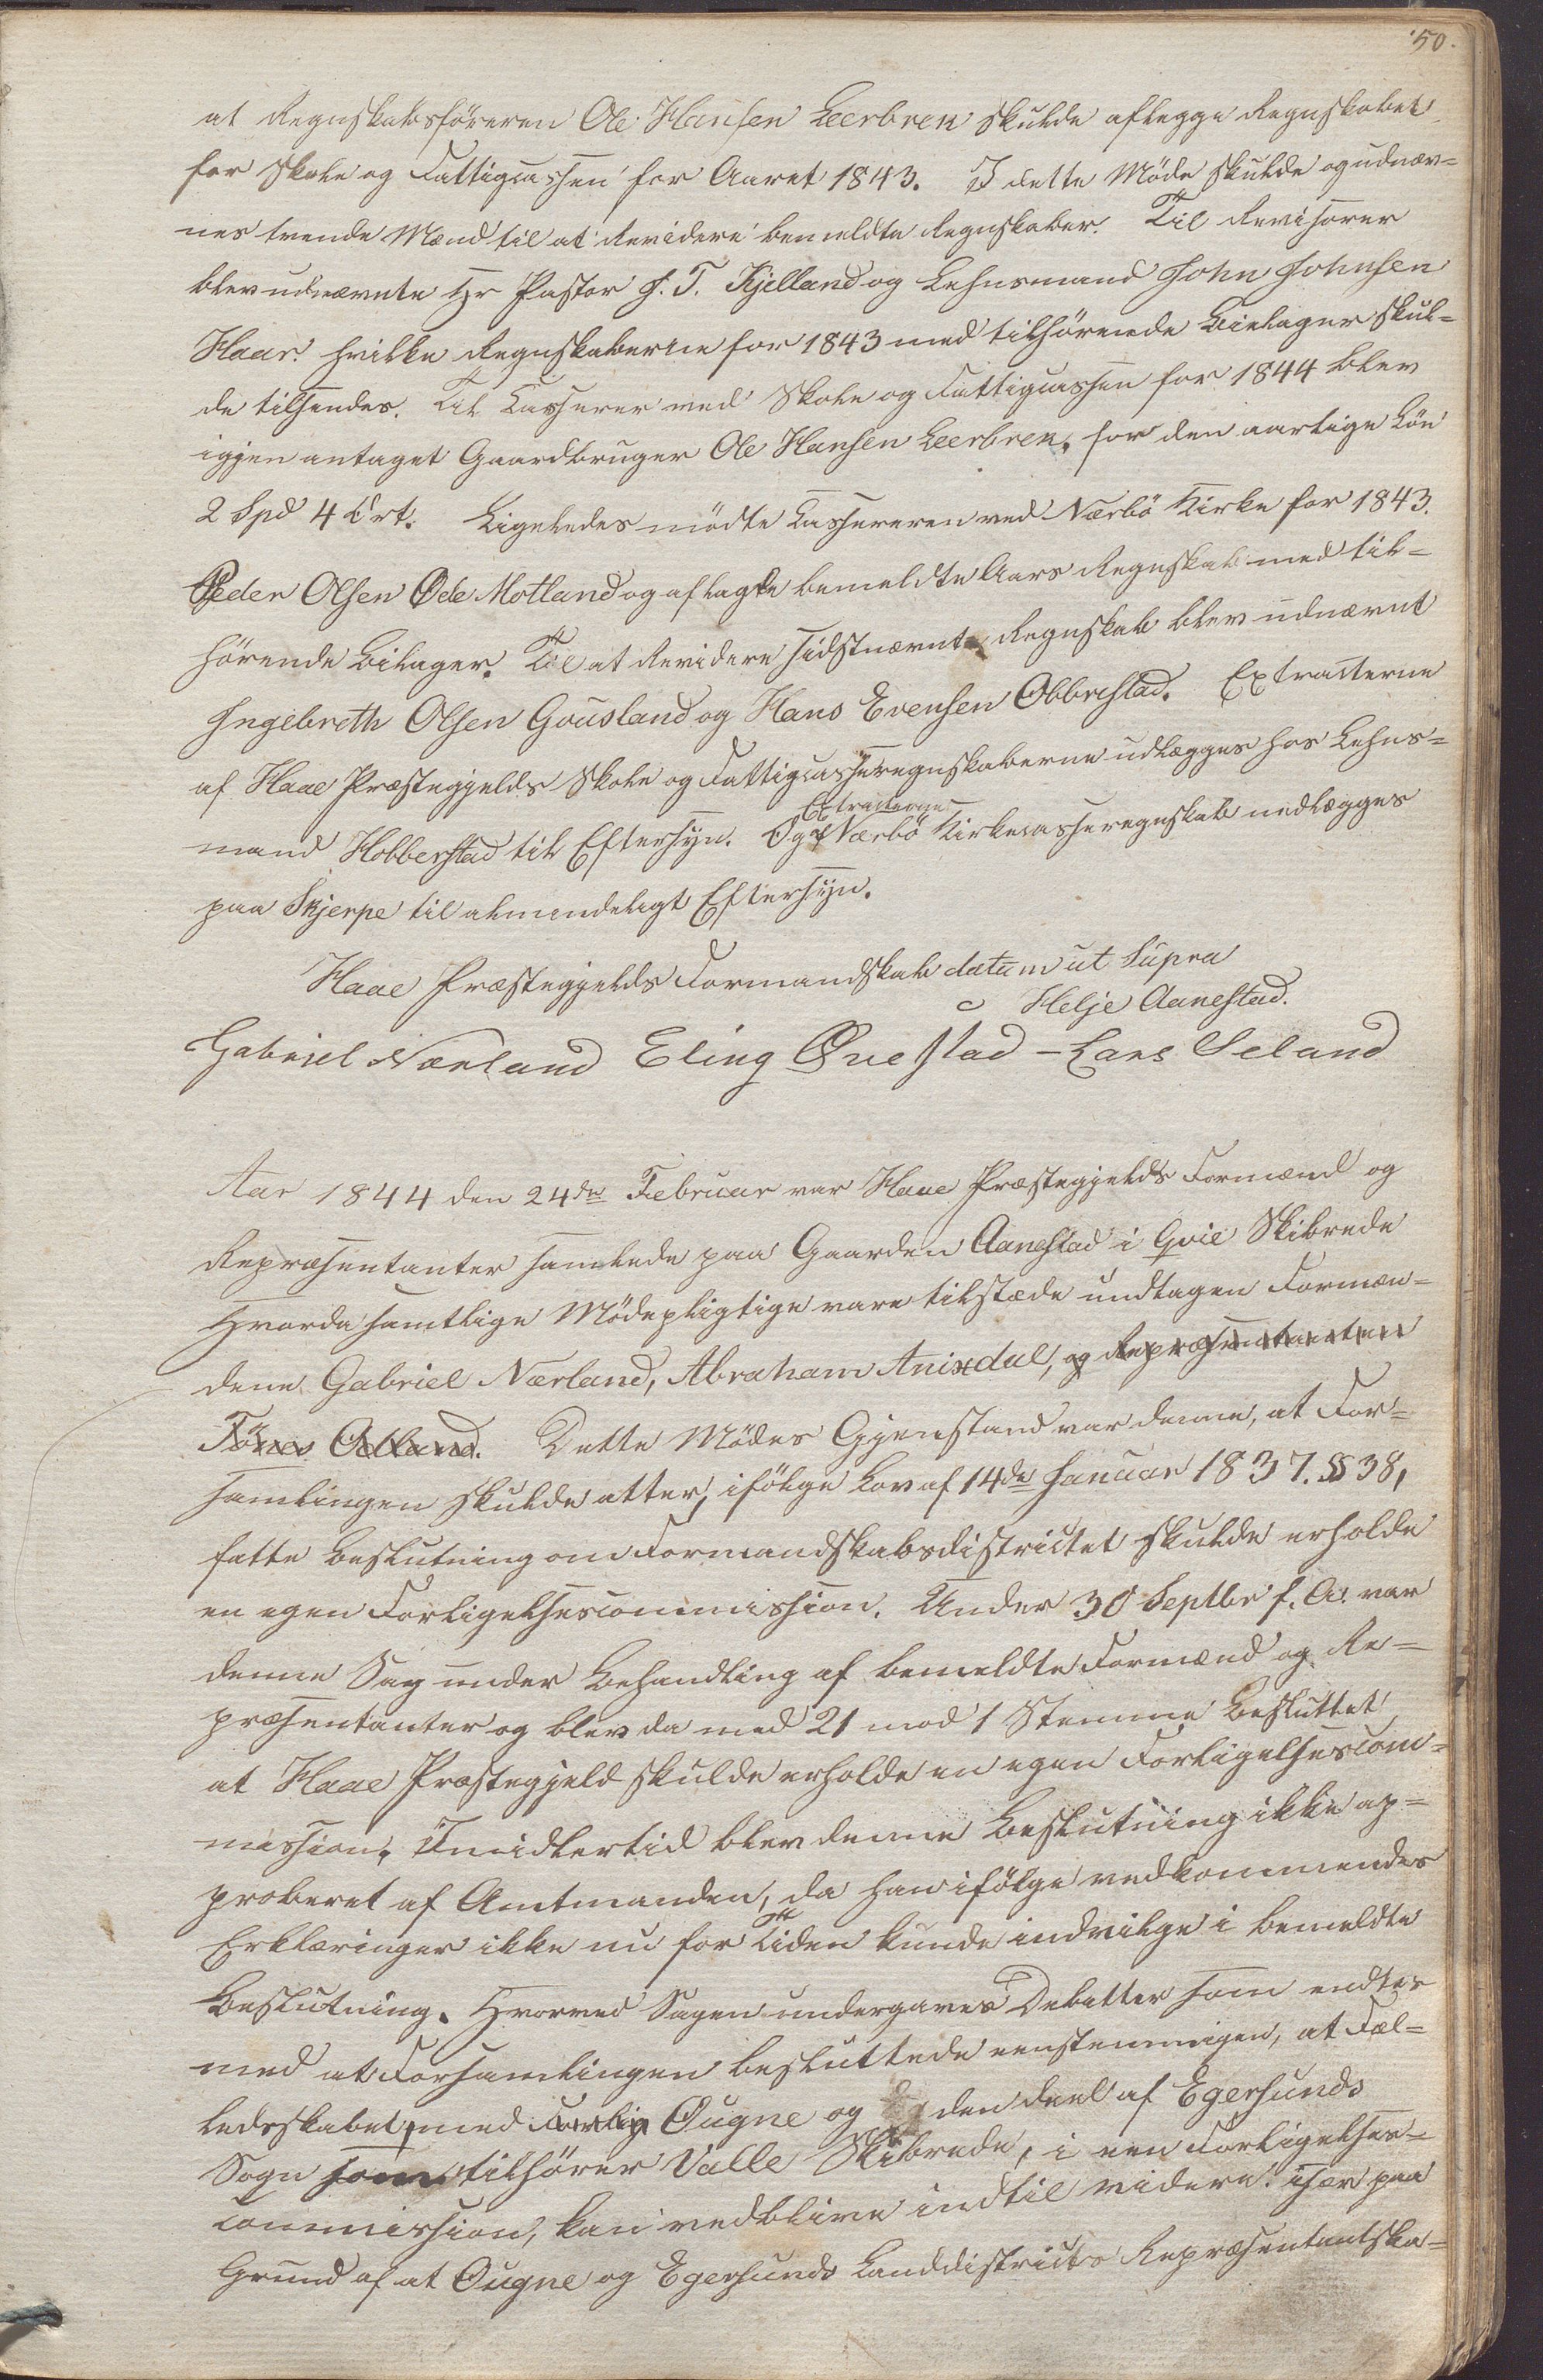 50.
at Regnskabsföreren Ole Hansen Leerbrek skulde aflegge Regnskabet
for Skole og Fattigcassen for Aaret 1843. I dette Möde skulde og udnæv=
nes tvende Mænd til at Revidere bemeldte Regnskaber. Til Revisorer
blev udnævnte Hr Pastor J. T. Kjelland og Lehnsmand John Johnsen
Haar. hvilke Regnskaberne for 1843 med tilhörende Bielager skul=
de tilsendes. Til Casserer ved Skole og Fattigcassen for 1844 blev
igjen antaget Gaardbruger Ole Hansen Leerbrek, for den aarlige Lön
2 Spd 4 Ort. Ligeledes mödte Cassereren ved Nærbö Kirke for 1843.
Peder Olsen Öde Motland og aflagde bemeldte Aars Regnskab med til=
hörende Bilager. Til at Revidere sidstnævnte Regnskab blev udnævnt
Ingebreth Olsen Gousland og Hans Evensen Obbrestad. Extracterne
af Haae Præstegjelds Skole og Fattigcasseregnskaberne udlægges hos Lehns=
mand Hobberstad til Eftersyn. Og Extracterne af Nærbö Kirkecasseregnskab nedlægges
paa Skjerpe til almindeligt Eftersyn.
Haae Præstegjelds Formandskab datum ut Supra
Helje Aanestad.
Gabriel Nærland Eling Øvestad - Lars Seland
Aar 1844 den 24de Februar var Haae Præstegjelds Formænd og
Repræsentanter samlede paa Gaarden Aanestad i Qvie Skibrede
Hvorda samtlige Mödepligtige vare tilstæde undtagen Formæn=
dene Gabriel Nærland, Abraham Anixdal, og Repræsentanten
Tönes Odland. Dette Mödes Gjenstand var denne, at For=
samlingen skulde atter, ifölge Lov af 14de Januar 1837. §§ 38,
fatte Beslutning om Formandskabsdistrictet skulde erholde
en egen Forligelsescommission. Under 30 Septbr f. A. var
denne Sag under Behandling af bemeldte Formænd og Re=
præsentanter og blev da med 21 mod 1 Stemme besluttet
at Haae Præstegjeld skulde erholde en egen Forligelsescom=
mission, Imidlertid blev denne Beslutning ikke ap=
proberet af Amtmanden, da han ifölge vedkommendes
Erklæringer ikke nu for Tiden kunde indvilge i bemeldte
Beslutning. Hvorved Sagen undergaves Debatter som endtes
med at Forsamlingen besluttede eenstemmigen, at Fæl=
ledsskabet, med Forlig Ougne og den deel af Egersunds
Sogn som tilhörer Valle Skibrede, i een Forligelses=
commission, kan vedblive indtil videre. især paa
Grund af at Ougne og Egersunds Landdistricts Repræsentantska=